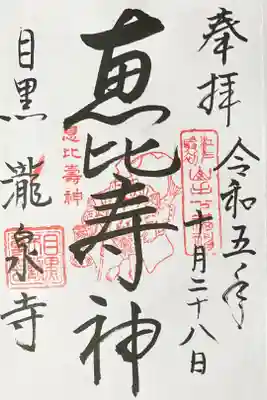 奉拝
令和五年
十月二十八日
恵比寿神
恵比壽神
目黒瀧泉寺